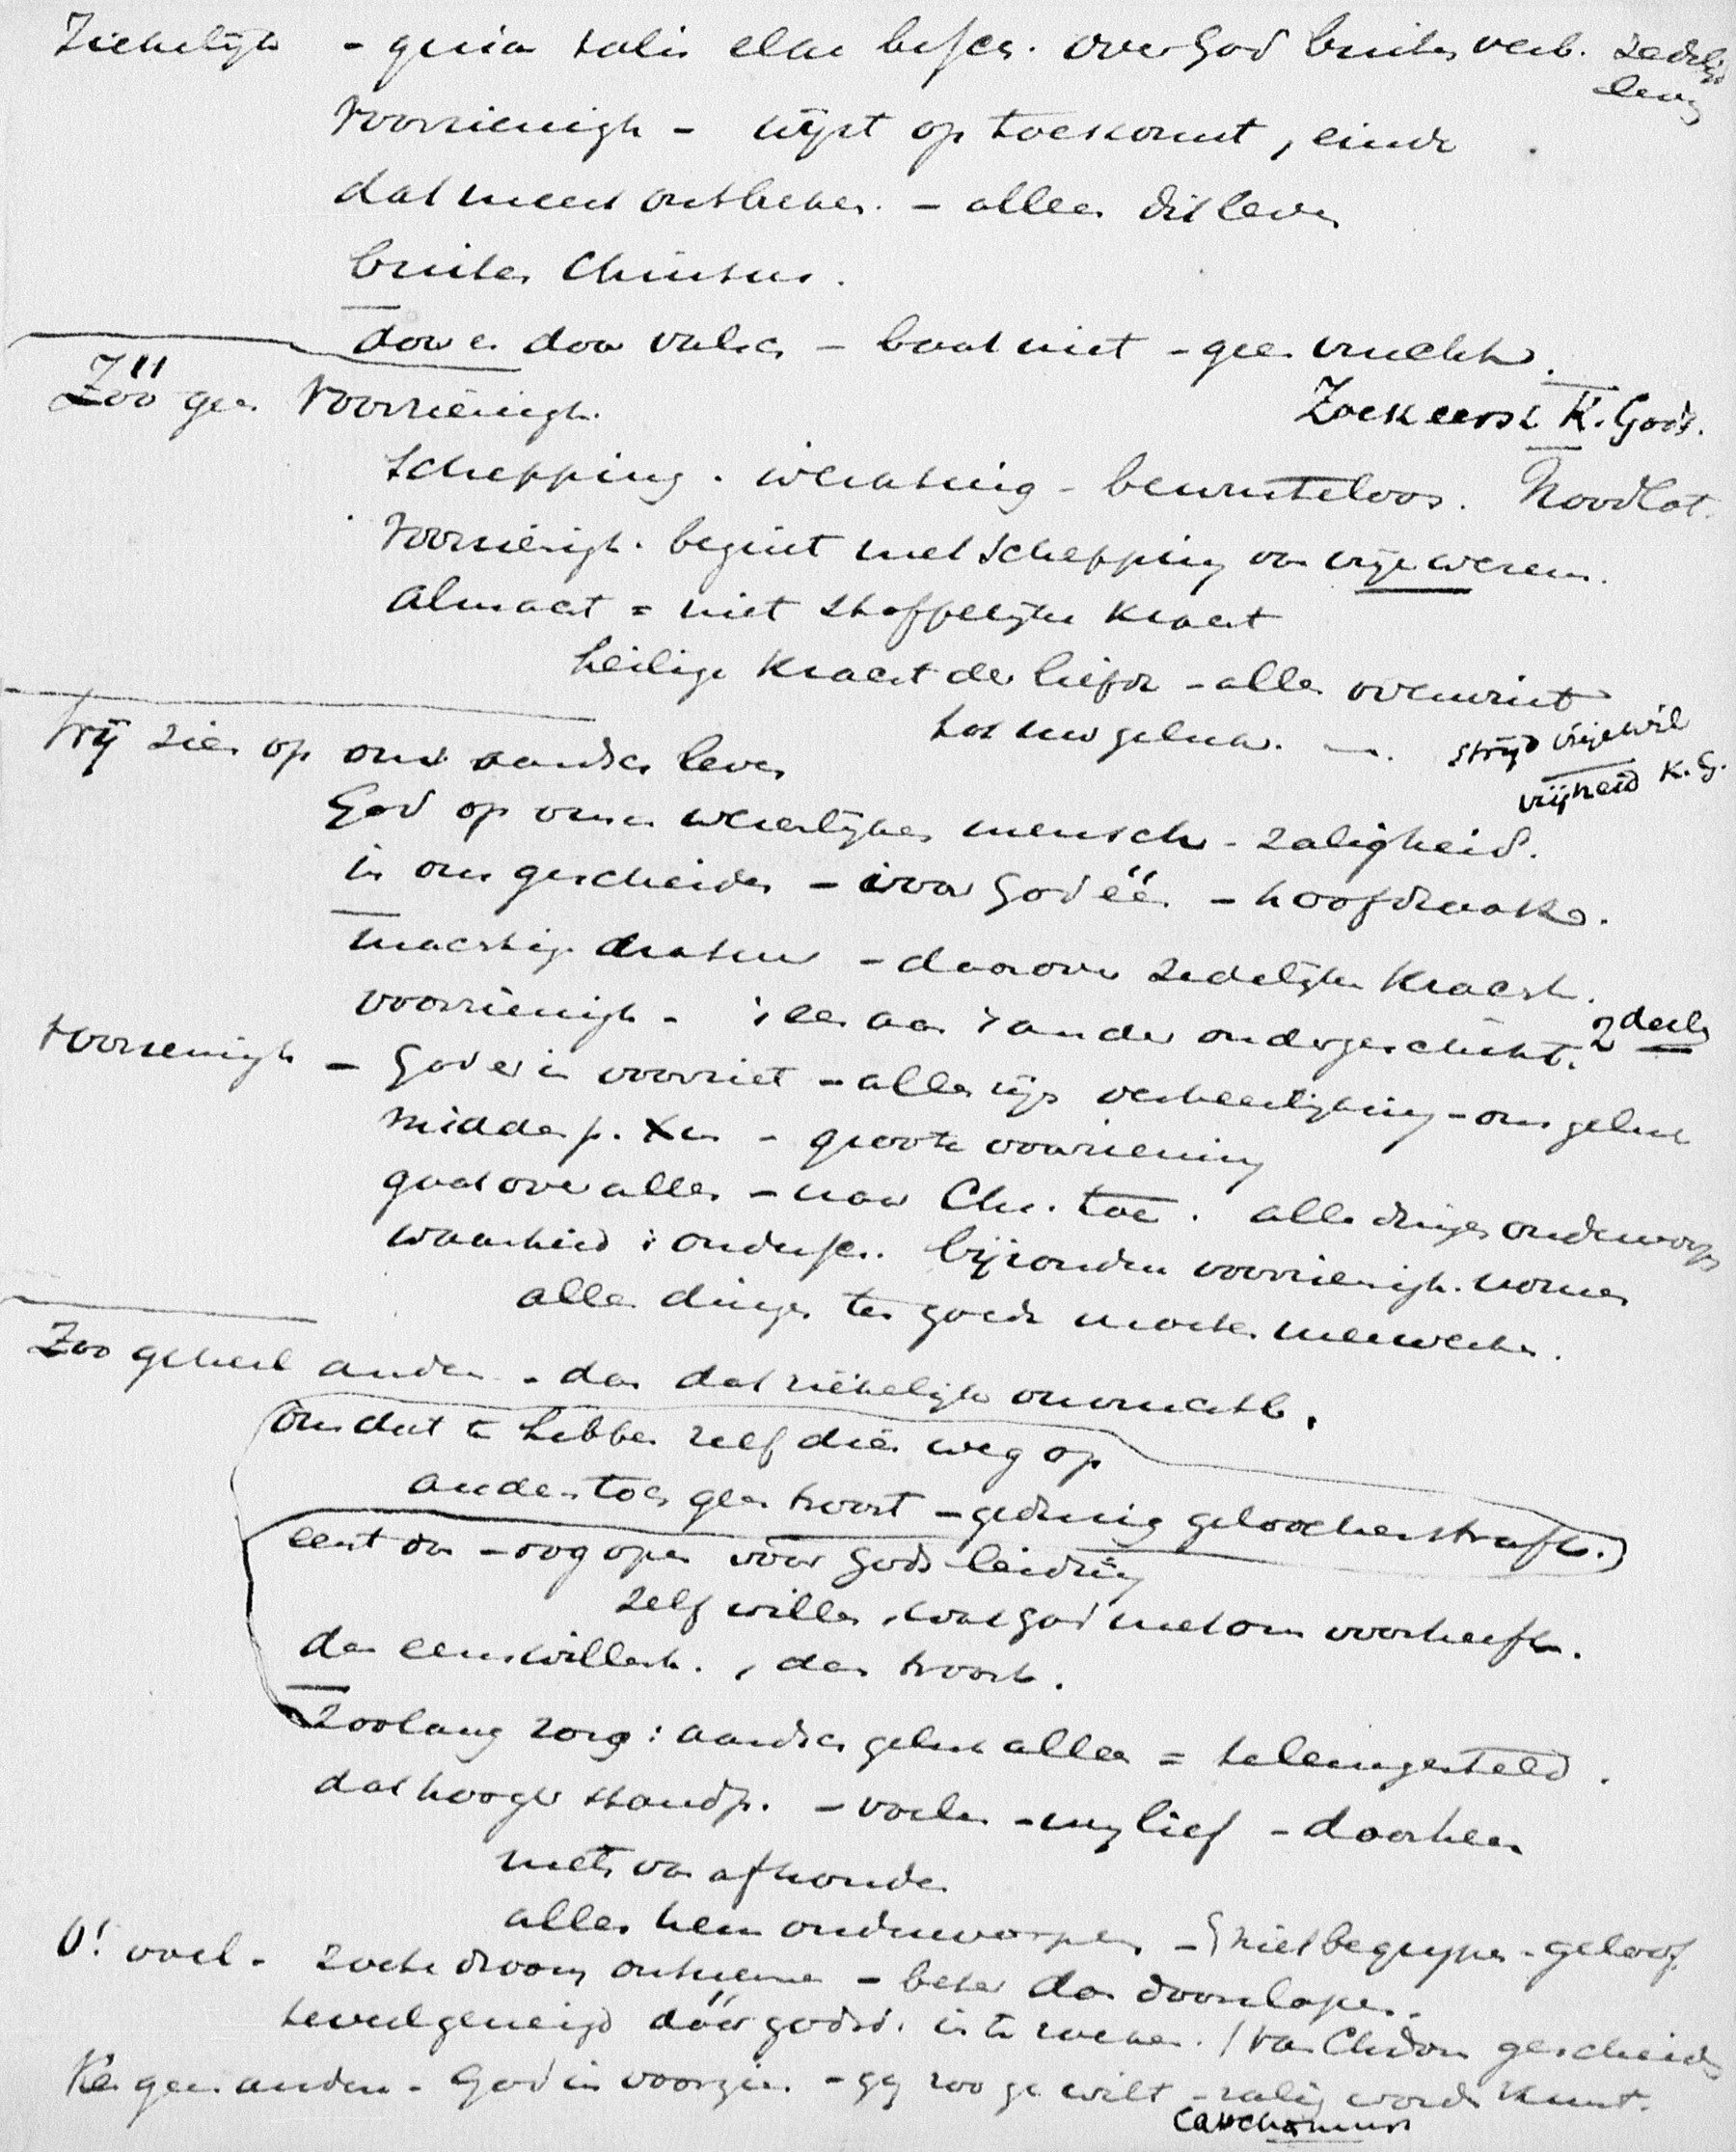 Ziekelijk - over God buiten verb. zedelijk
leven
Voorzienigh - wijst op toekomst, einde
dat meest ontbreken. - alleen dit leven
buiten Christus.
door en door valsch - baat niet - geen vrucht.
Zóó geen Voorzienigh.
Zoek eerst K. Gods.
Schepping. werking - bewusteloos. Noodlot.
Voorzienigh. begint met schepping van vrije wezens.
Almacht = niet stoffelijke kracht
heilige kracht der liefde - alles overwint
tot uw geluk.
strijd vrije wil
vrijheid K. G.
Wij zien op ons aardsch leven
God op onzen wezenlijken mensch - zaligheid.
in ons gescheiden - voor God éé - hoofdzaak
- daarover zedelijke kracht.
voorzienigh - 't een aan 't ander ondergeschikt. 2 deelen
Voorzienigh - God er in voorziet - alles zijn verheerlijking - ons geluk
midden p. X - groote voorziening
gaat over alles - naar Chr. toe. alle dingen onderworpen
waarheid bijzondere voorzienigh. vormen
alle dingen ten goede moeten medewerken.
Zoo geheel anders - dan dat ziekelijk onvruchtb.
Om dat te hebben zelf dien weg op
anders toch geen troost - gedurig gelogenstraft.
eerst dan - oog open vóór Gods leiding
zelf willen, wat God met ons voorheeft.
dan eenswillend., dan troost.
Zoolang zorg: aardsch geluk alleen = teleurgesteld.
dat hooger standp. - voelen - mij lief - doorheen
niets van afhouden
alles hem onderworpen - niet begrijpen - geloof.
O! voel - zoete droom ontnemen - beter dan doorslapen.
geneigd dóór godsd. in te roepen. / van Chrdom gescheiden
Ken geen andere - God in voorzien - gij zoo ge wilt - zalig worden kunt.